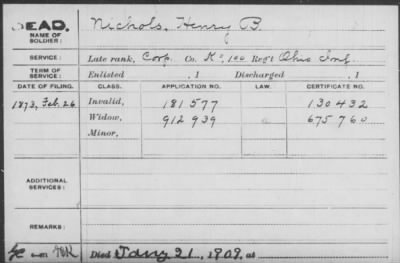 DEAD.
NAME OF SOLDIER: Nichols, Henry B.
SERVICE: Late rank, Corp. Co. K, 100 Reg't Ohio Inf.
TERM OF SERVICE: Enlisted , 1 Discharged , 1
DATE OF FILING. CLASS. APPLICATION NO. LAW. CERTIFICATE NO.
1873, Feb. 26 Invalid, 181577 130432
Widow, 912939 675760
Minor,
ADDITIONAL SERVICES:
REMARKS:
Died Jany 21, 1909, at